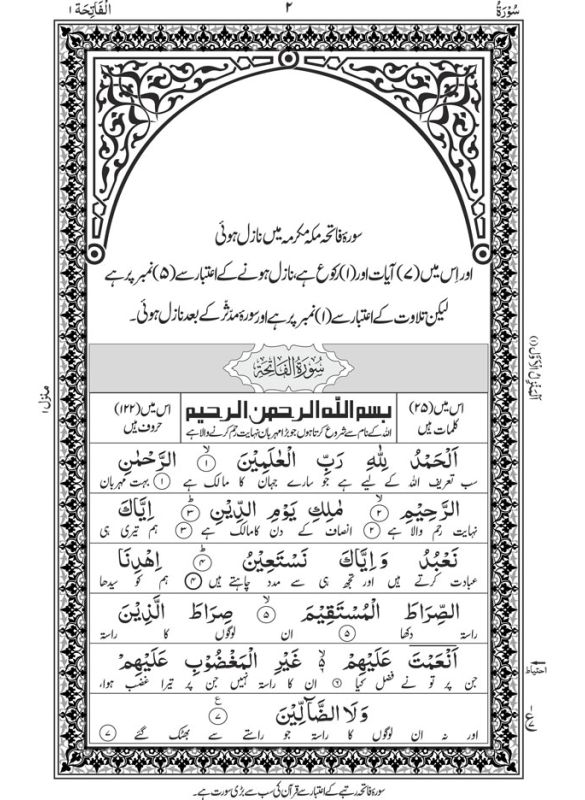 سُوْرَةُ ٢ اَلْفَاتِحَة ١
سورۂ فاتحہ مکہ مکرمہ میں نازل ہوئی
اور اِس میں (۷) آیات اور (۱) رکوع ہے، نازل ہونے کے اعتبار سے (۵) نمبر پر ہے
لیکن تلاوت کے اعتبار سے (۱) نمبر پر ہے اور سورہ مدثر کے بعد نازل ہوئی۔
سُوْرَةُ الْفَاتِحَةِ
اس میں (۲۵) کلمات ہیں
بسم الله الرحمن الرحيم
اللہ کے نام سے شروع کرتا ہوں جو بڑا مہربان نہایت رحم کرنے والا ہے
اس میں (۱۲۲) حروف ہیں
اَلْحَمْدُ لِلّٰهِ رَبِّ الْعٰلَمِيْنَ ۙ﴿۱﴾ الرَّحْمٰنِ
سب تعریف اللہ کے لیے ہے جو سارے جہان کا مالک ہے ﴿۱﴾ بہت مہربان
الرَّحِيْمِ ۙ﴿۲﴾ مٰلِكِ يَوْمِ الدِّيْنِ ؕ﴿۳﴾ اِيَّاكَ
نہایت رحم والا ہے ﴿۲﴾ انصاف کے دن کا مالک ہے ﴿۳﴾ ہم تیری ہی
نَعْبُدُ وَاِيَّاكَ نَسْتَعِيْنُ ؕ﴿۴﴾ اِهْدِنَا
عبادت کرتے ہیں اور تجھ ہی سے مدد چاہتے ہیں ﴿۴﴾ ہم کو سیدھا
الصِّرَاطَ الْمُسْتَقِيْمَ ۙ﴿۵﴾ صِرَاطَ الَّذِيْنَ
راستہ دکھا ﴿۵﴾ ان لوگوں کا راستہ
اَنْعَمْتَ عَلَيْهِمْ ۙ۬ غَيْرِ الْمَغْضُوْبِ عَلَيْهِمْ
جن پر تو نے فضل کیا ﴿۶﴾ ان کا راستہ نہیں جن پر تیرا غضب ہوا،
وَلَا الضَّآلِّيْنَ ﴿۷﴾ ع
اور نہ ان لوگوں کا راستہ جو راستے سے بھٹک گئے ﴿۷﴾
منزل ۱
احتیاط
سورۂ فاتحہ رتبے کے اعتبار سے قرآن کی سب سے بڑی سورت ہے۔